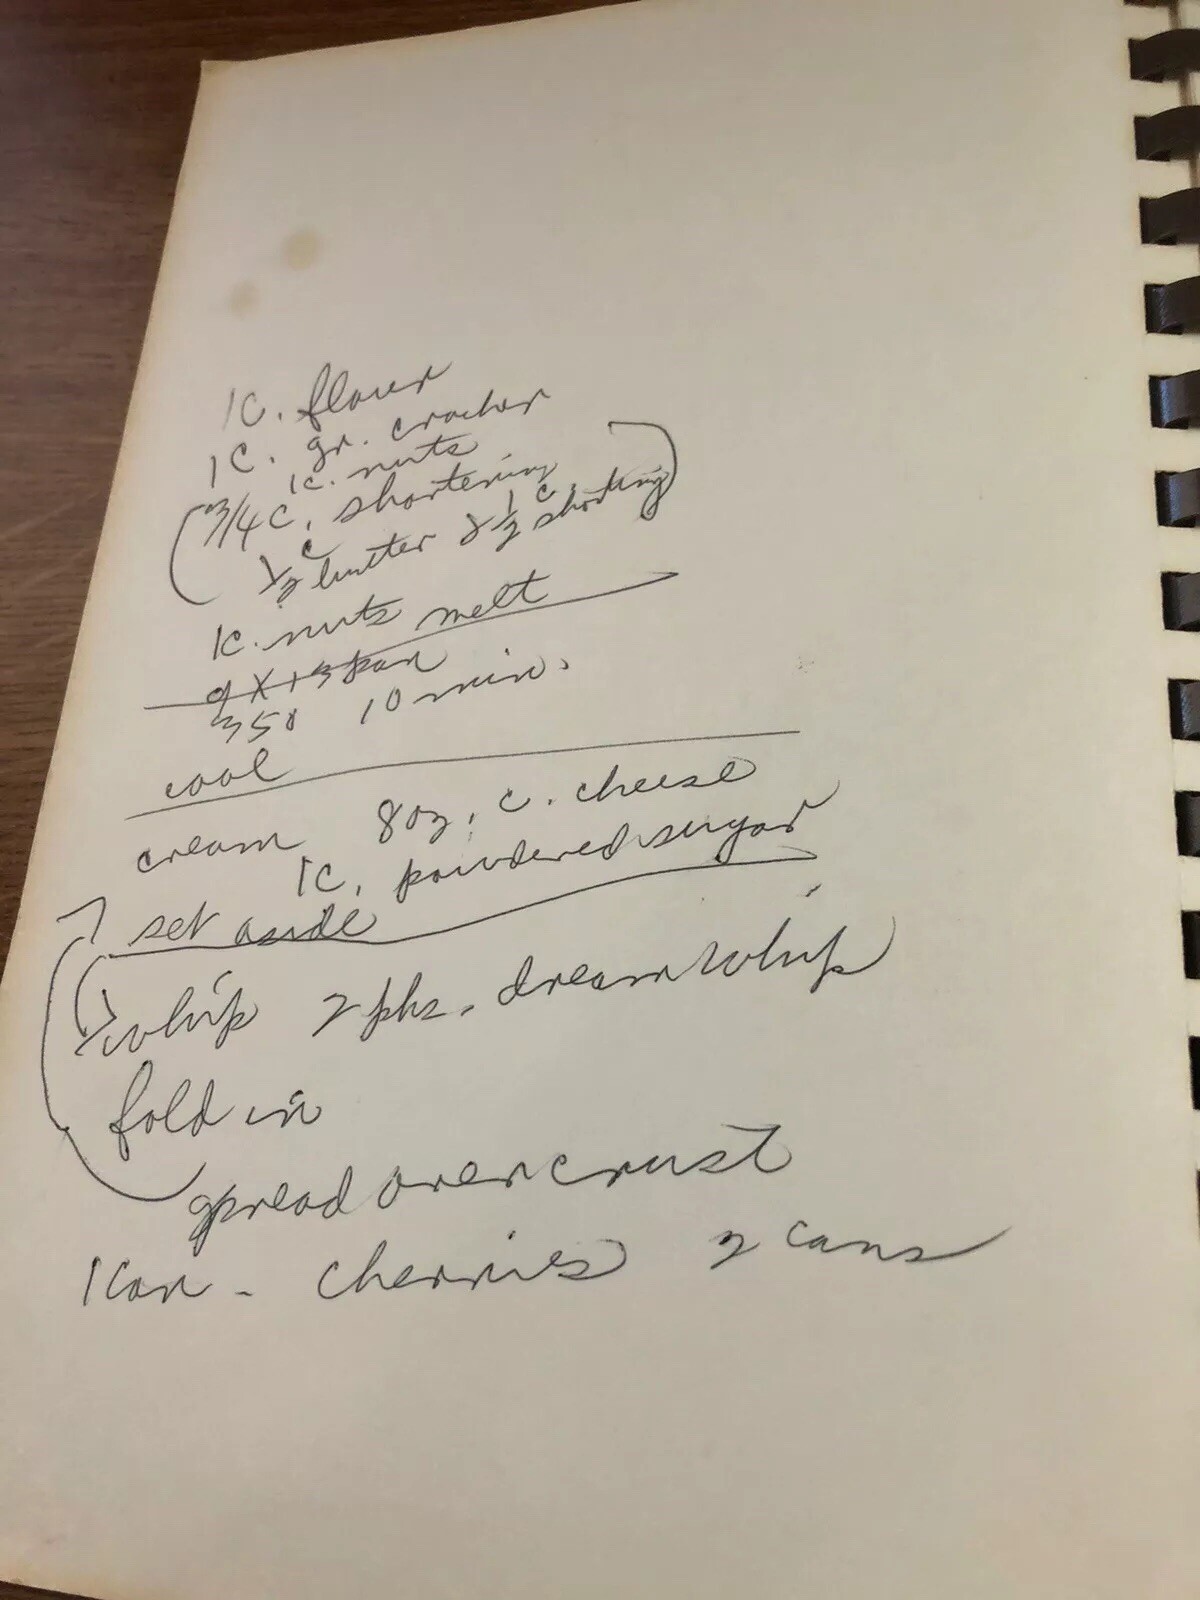 1c. flour
1c. gr. cracker
1c. nuts
3/4 c. shortening
1/2 c butter & 1/2 c. shortning
1c. nuts melt
9 x 13 pan
350 10 min.
cool
cream 8 oz. c. cheese
1c. powdered sugar
set aside
whip 2 pks. dream whip
fold in
spread over crust
1 can - cherries 2 cans